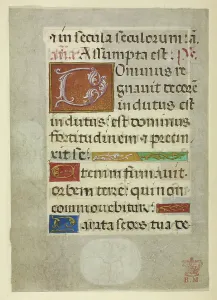 & in secula seculorum. am̄.
aña Assumpta est. ps.
Dominus re
gnauit decorē
indutus est
indutus est dominus
fortitudinem & precin
xit se
Etenim firmauit
orbem terre qui non
commouebitur.
Parata sedes tua de